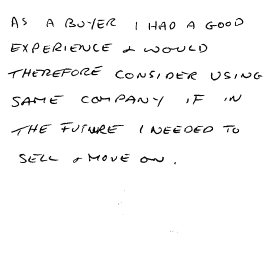 AS A BUYER I HAD A GOOD
EXPERIENCE & WOULD
THEREFORE CONSIDER USING
SAME COMPANY IF IN
THE FUTURE I NEEDED TO
SELL & MOVE ON.